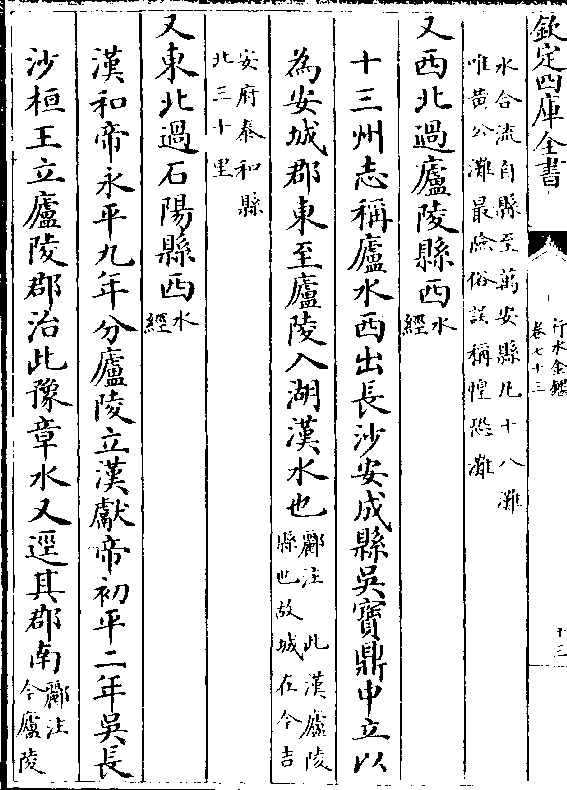 欽定四庫全書
行水金鑑
卷七十三
十三
水合流自縣至萬安縣凡十八灘
唯黃公灘最險俗誤稱惶恐灘
又西北過廬陵縣西水經
十三州志稱廬水西出長沙安成縣吳寶鼎中立以
為安城郡東至廬陵入湖漢水也酈注 此漢廬陵縣也故城在今吉
安府泰和縣
北三十里
又東北過石陽縣西水經
漢和帝永平九年分廬陵立漢獻帝初平二年吳長
沙桓王立廬陵郡治此豫章水又逕其郡南酈注 今廬陵